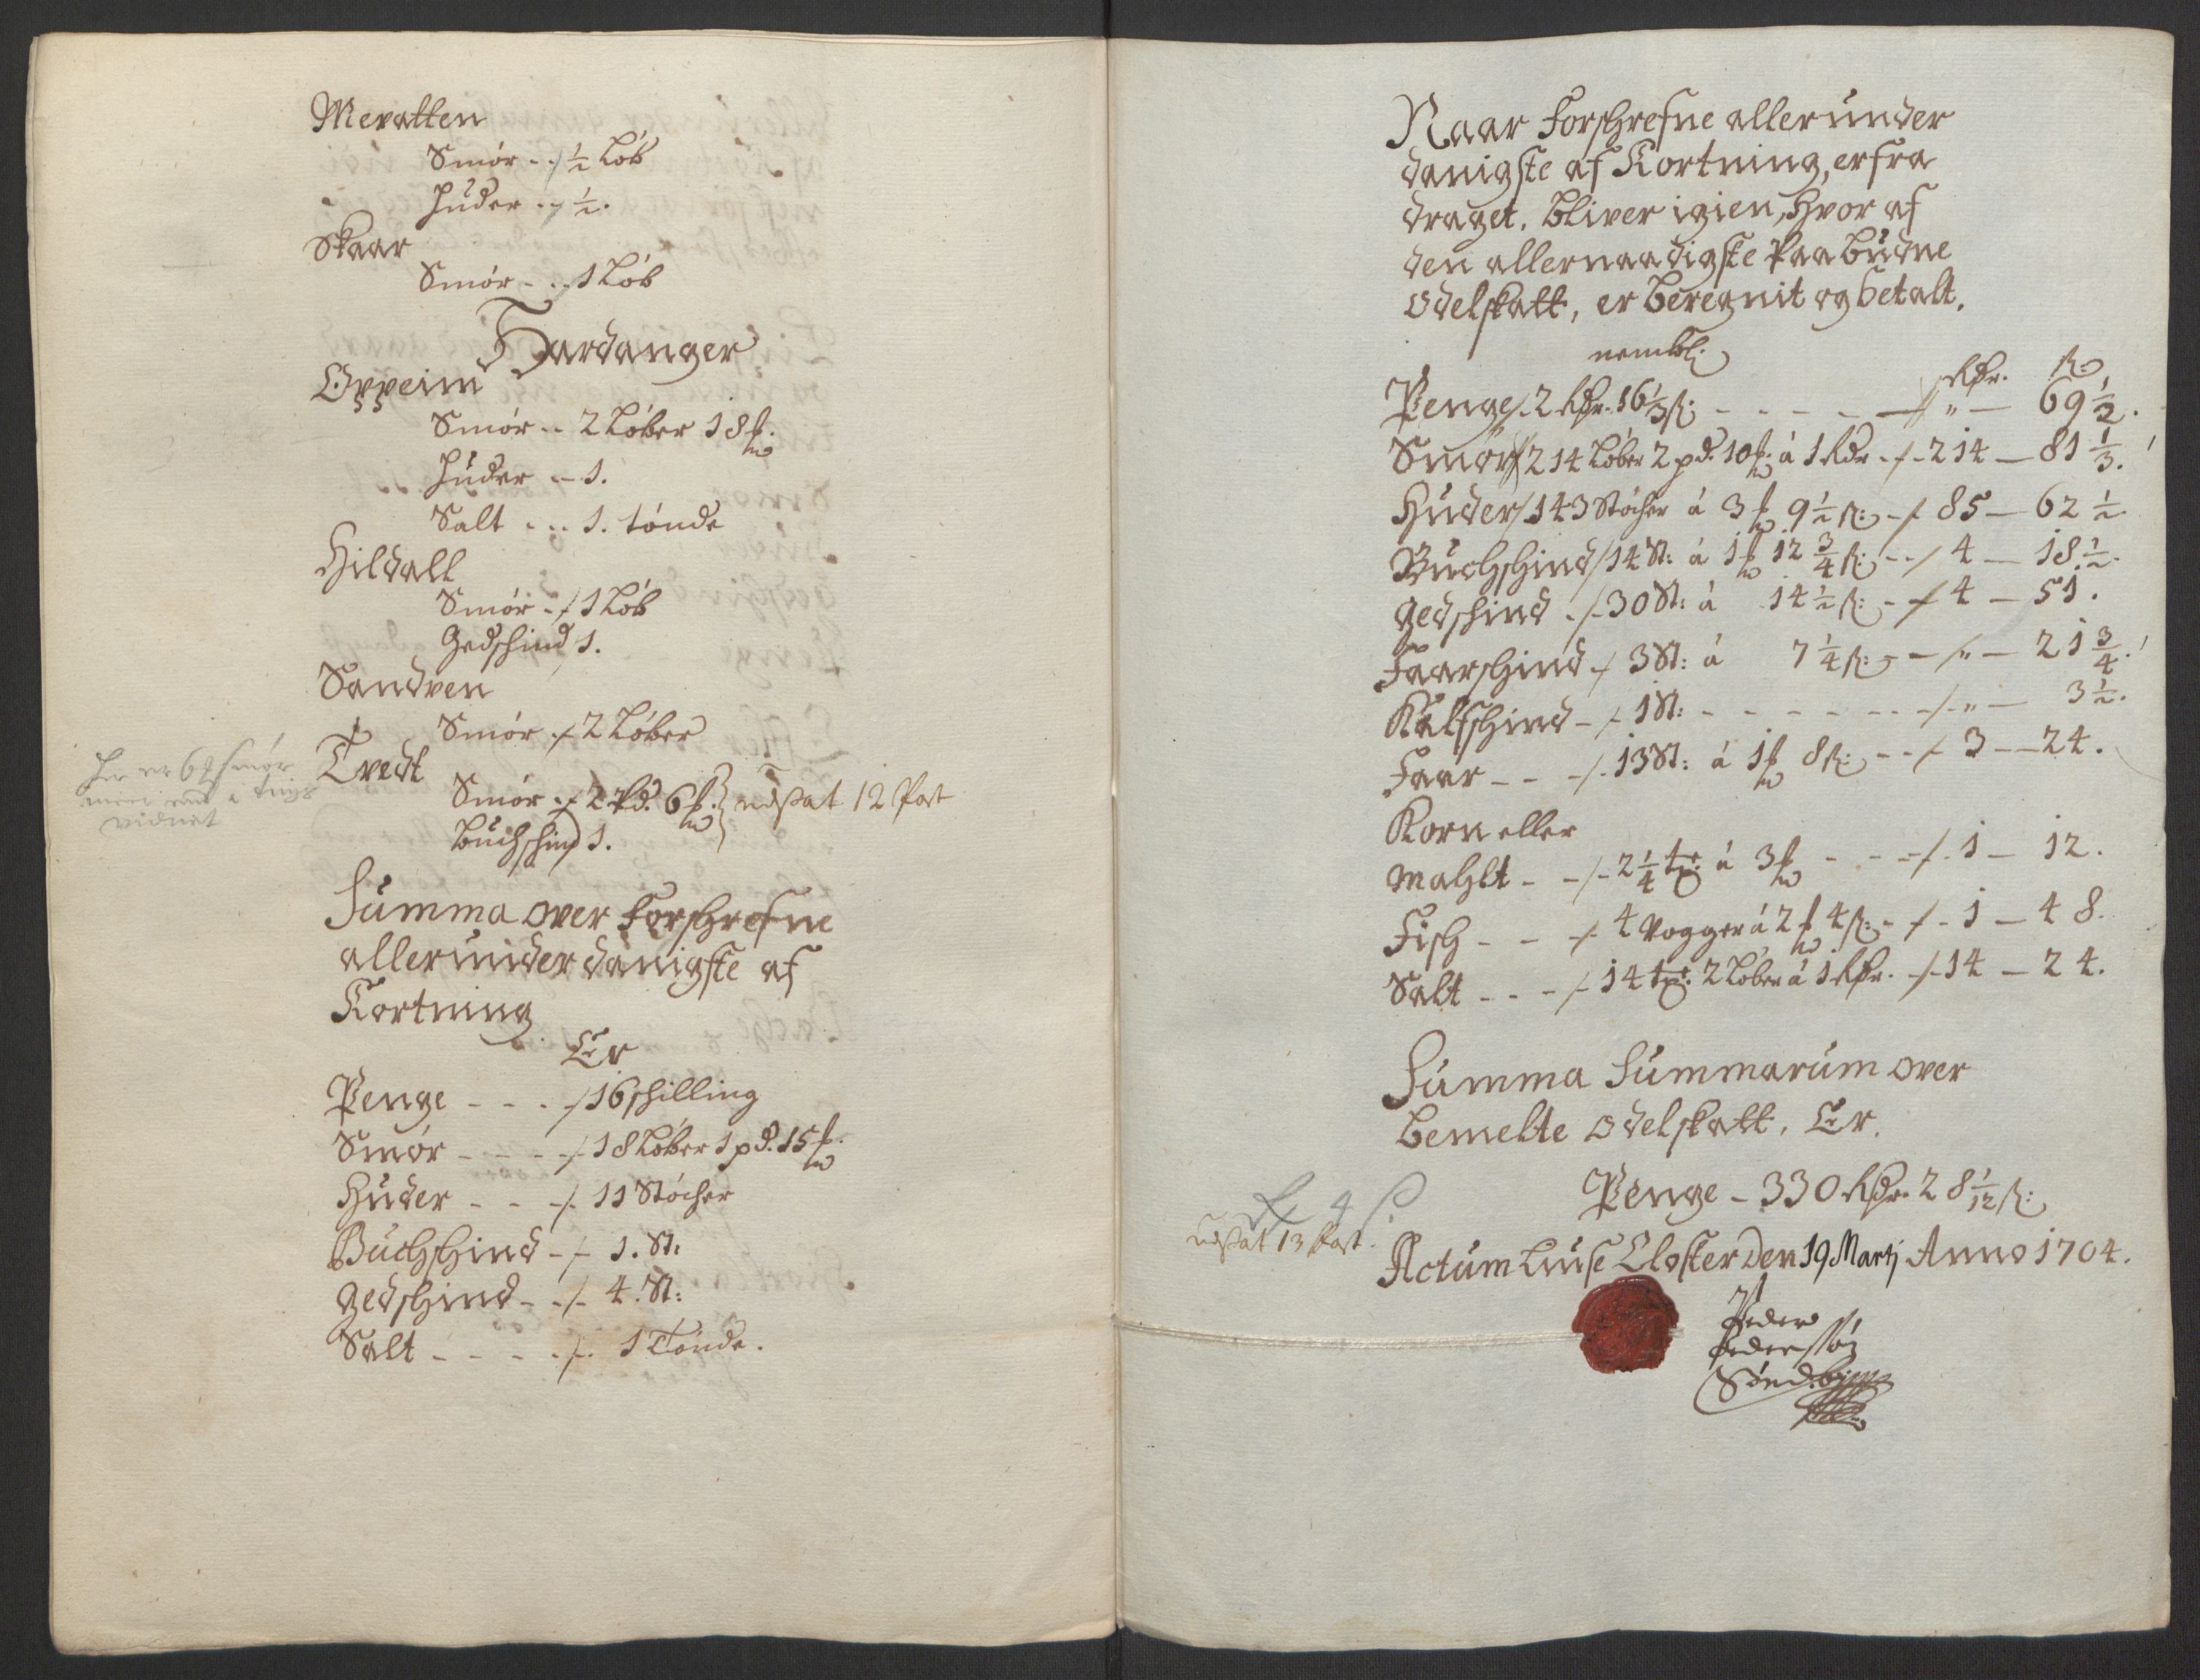 Mevatten
Smör - ⁒ ½ Löb
Huder ⁒ ½.
Skaar
Smör - ⁒ 1 Löb
Hardanger
Oppeim
Smör - 2 Löber 18 ℔.
Huder - 1.
Salt - - 1. tönde
Hildall
Smör ⁒ 1 Löb
Gedschind 1.
Sandven
Smör ⁒ 2 Löber
Tvedt
Smör ⁒ 2 Pd. 6 ℔. } udsat 12 Post
Buchschind 1.
Her er 6 smör
vidnet
Summa over Forschrefne
allerunderdanigste af
Kortning
Er
Penge - - - ⁒ 16 schilling
Smör - - - ⁒ 18 Löber 1 pd. 15 ℔.
Huder - - ⁒ 11 Stöcher
Buchschind - ⁒ 1. St:
Gedschind - ⁒ 4. St:
Salt - - - - ⁒ 1 Tönde.
Naar Forschrefne allerunder
danigste af Kortning, er fra
draget, bliver igien, hvor af
den allernaadigste Paabudne
Odelskatt, er beregnit og betalt.
nembl.
Rdr. ß
Penge ⁒ 2 Rdr. 16 ⅓ ß: - - - - - „ - 69 ½.
Smör ⁒ 214 Löber 2 pd. 10 ℔. á 1 Rdr ⁒ 214 - 81 ⅓.
Huder ⁒ 143 Stöcher á 3 ℔ 9 ½ ß: ⁒ 85 - 62 ½.
Buchschind ⁒ 14 St: á 1 ℔ 12 ¾ ß: - ⁒ 4 - 18 ½.
Gedschind ⁒ 30 St: á 14 ½ ß: - ⁒ 4 - 51.
Faarschind ⁒ 3 St: á 7 ¼ ß: - ⁒ „ - 21 ¾.
Kalfschind - ⁒ 1 St: - - - - - - ⁒ „ - 3 ½.
Faar - - ⁒ 13 St: á 1 ℔ 8 ß: - - ⁒ 3 - 24.
Korn eller
Mahlt - - ⁒ 2 ¼ tr: á 3 ℔ - - - ⁒ 1 - 12.
Fisch - - ⁒ 4 Vogger á 2 ℔ 4 ß: - ⁒ 1 - 48.
Salt - - - ⁒ 14 tr: 2 Löber á 1 Rdr. ⁒ 14 - 24.
Summa Summarum over
bemelte Odelskatt, Er.
Penge - 330 Rdr. 28 1/12 ß:
udsat 13 Post.
Actum Liuse Closter den 19 Martj Anno 1704.
Peder
Pedersön